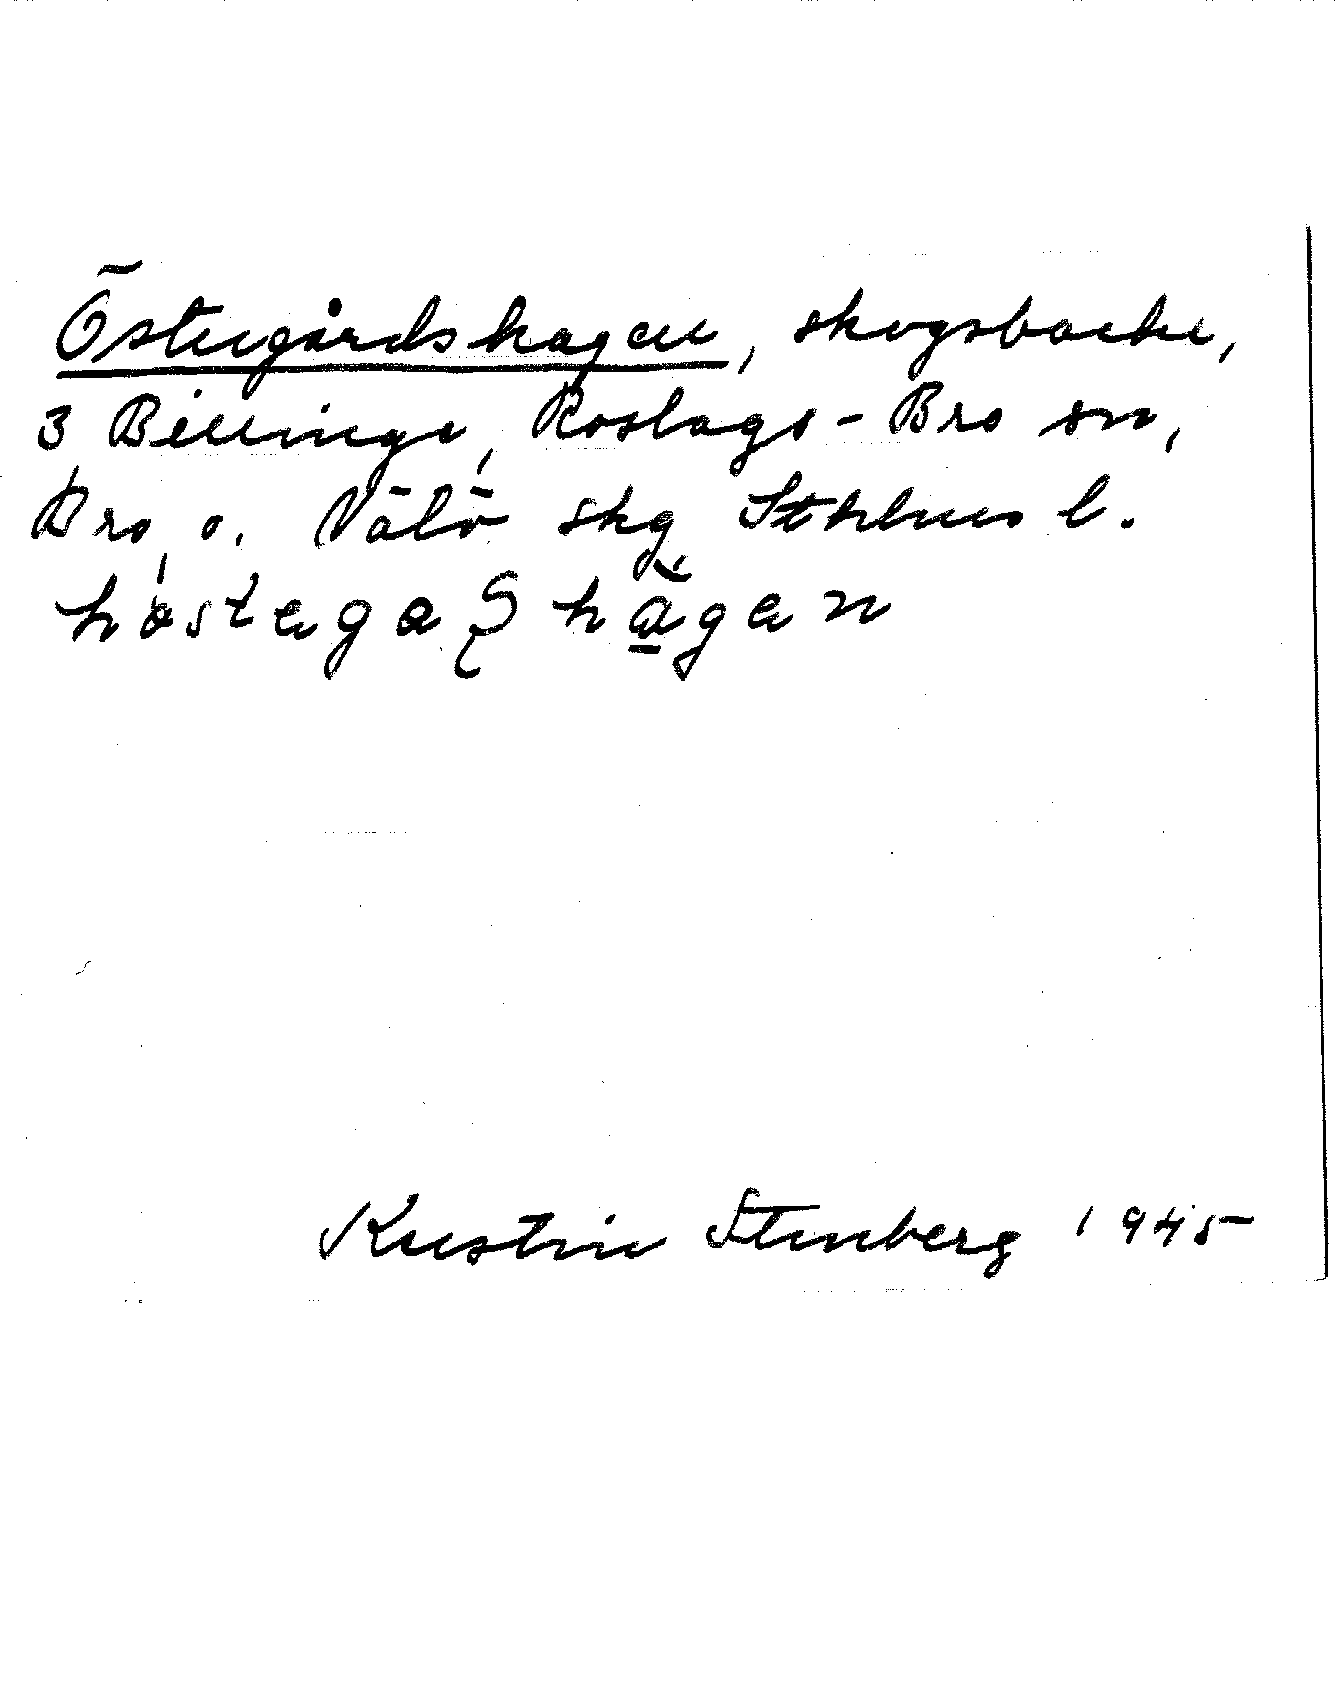 Östergårdshagen, skogsbacke,
3 Billinge, Roslags-Bro sn,
Bro o. Vätö skg Sthlms l.
Kerstin Stenberg 1945